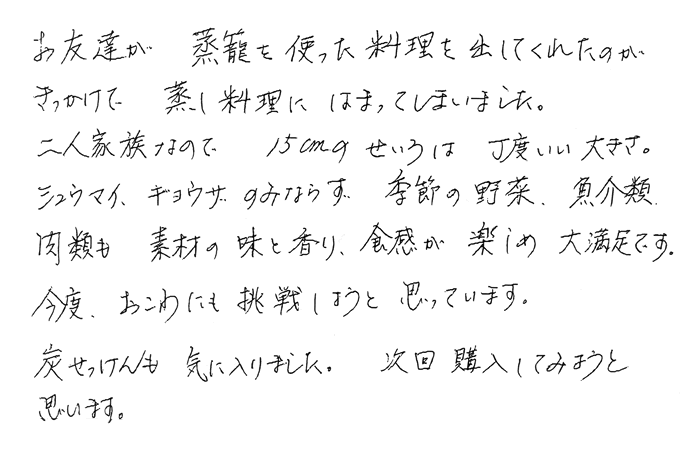 お友達が 蒸籠を使った料理を出してくれたのが
きっかけで 蒸し料理に はまってしまいました。
二人家族なので 15cmのせいろは 丁度いい大きさ。
シュウマイ、ギョウザのみならず 季節の野菜、魚介類、
肉類も 素材の味と香り、食感が 楽しめ 大満足です。
今度、おこわにも挑戦しようと思っています。
炭せっけんも 気に入りました。 次回購入してみようと
思います。